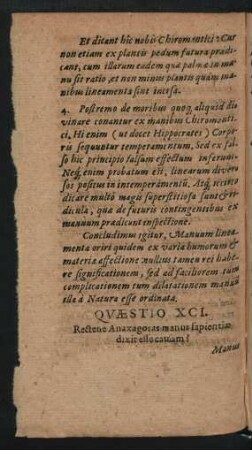 Et dicant hîc nobis Chiromantici: Cur
non etiam ex plantis pedum futura prædi-
cant, cum illarum eadem quæ palmæ in ma-
nu sit ratio, et non minus plantis quàm ma-
nibus lineamenta sint incisa.
4. Postremo de moribus quoq, aliquid di-
vinare conantur ex manibus Chiromanti-
ci, Hi enim (ut docet Hippocrates) Corpo-
ris sequuntur temperamentum, Sed ex fal-
so hic principio falsum effectum inferunt.
Neq, enim probatum est, linearum diver-
sos positus in intemperamentū. Atq,
dicare multo magis superstitiosa sunt & ri-
dicula, qua de futuris contingentibus ex
manuum prædicunt inspectione.
Concludimus igitur, Manuum linea-
menta oriri quidem ex varia humorum &
materiæ affectione nullius tamen rei habe-
re significationem, sed ad faciliorem tum
complicationem tum dilatationem manuū
illa à Natura esse ordinata.
QVÆSTIO XCI.
Rectene Anaxagoras manus sapientiæ
dixit esse causam?
Manus